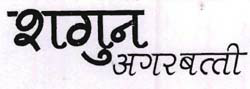 शगुन
अगरबत्ती